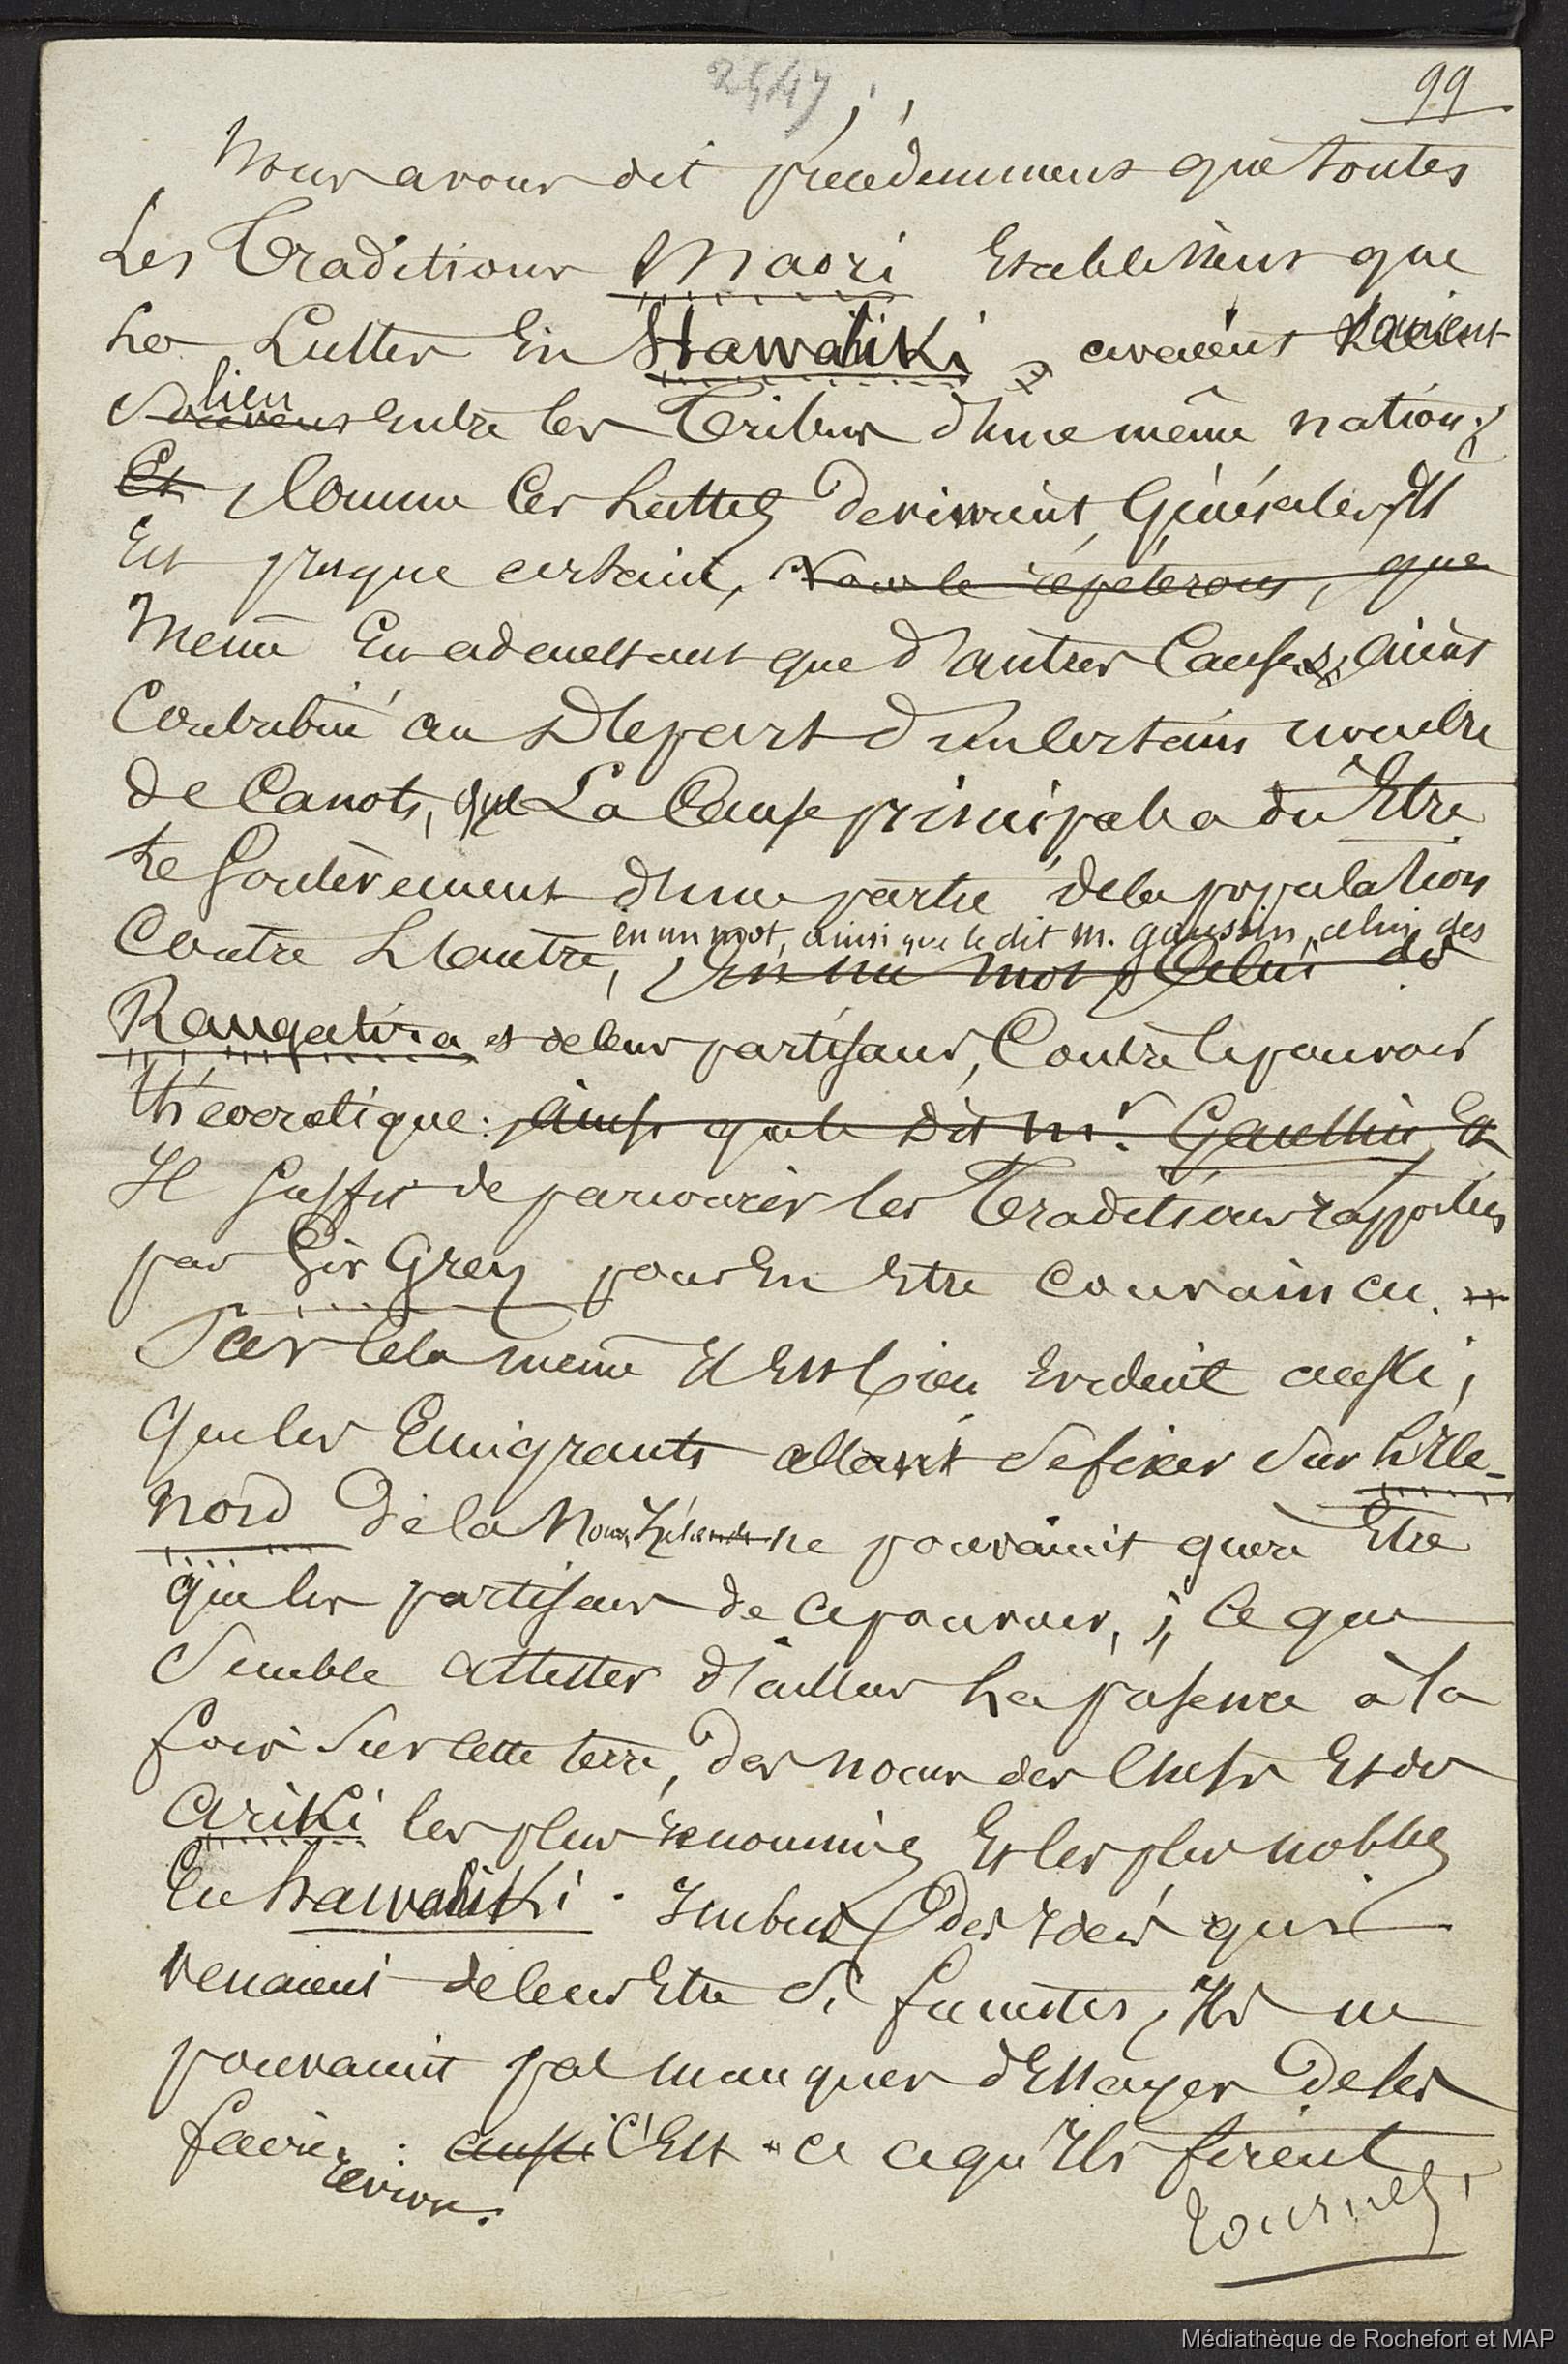 2547
99
Nous avons dit précédemment que toutes
Les Traditions Maori Etablissent que
Les Luttes En Hawahiki, avaient
lieu Entre les Tribus d'une même nation;
Et Comme Ces Luttes devinrent, Générales, Il
Est presque certain, Nous le répéterons, que
Même En admettant que d'autres Causes, aient
Contribué au Départ d'un Certain nombre
de Canots, que La Cause principale a dû Etre
Le Soulèvement d'une partie de la population
Contre L'autre, en un mot, ainsi que le dit M. Gaussin, celui des
En un mot, Celui des
Rangatira et de leurs partisans, Contre le pouvoir
théocratique: Ainsi que le Dit Mr. Gaussin, Et
Il Suffit de parcourir les Traditions rapportées
par Sir Grey pour En Etre Convaincu.
Par Cela même Il Est bien Evident aussi,
Que les Emigrants allant Se fixer Sur L'Ile-
Nord De la Nouv. Zélande ne pouvaient guère Etre
que les partisans de Ce pouvoir, ; Ce que
Semble attester d'ailleurs La présence à la
fois Sur Cette terre, des noms des Chefs Et des
Ariki les plus renommés Et les plus nobles
En Hawahiki. Imbus des Idées qui
Venaient de leur Etre Si funestes, Ils ne
pouvaient pas manquer d'Essayer De les
faire : aussi C'Est ce qu'Ils firent,
revivre.
tournez
Médiathèque de Rochefort et MAP